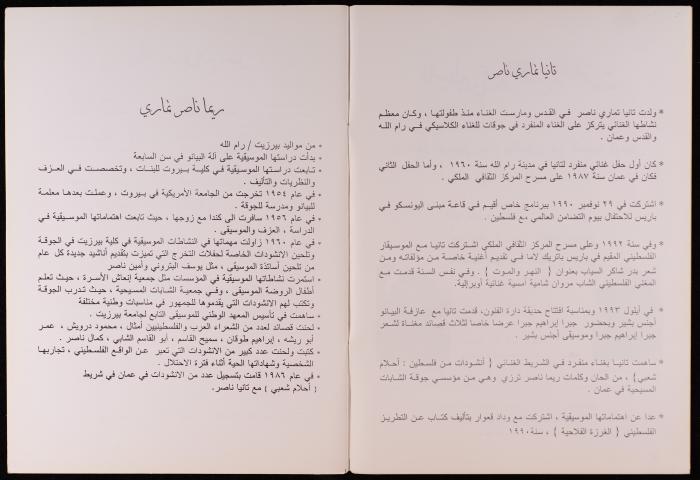 تانيا تماري ناصر
* ولدت تانيا تماري ناصر في القدس ومارست الغناء منذ طفولتها ، وكان معظم
نشاطها الغنائي يتركز على الغناء المنفرد في جوقات للغناء الكلاسيكي في رام الله
والقدس وعمان .
* كان أول حفل غنائي منفرد لتانيا في مدينة رام الله سنة ١٩٦٠ ، وأما الحفل الثاني
فكان في عمان سنة ١٩٨٧ على مسرح المركز الثقافي الملكي .
* اشتركت في ٢٩ نوفمبر ١٩٩٠ ببرنامج خاص أقيم في قاعة مبنى اليونسكو في
باريس للاحتفال بيوم التضامن العالمي مع فلسطين .
* وفي سنة ١٩٩٢ وعلى مسرح المركز الثقافي الملكي اشتركت تانيا مع الموسيقار
الفلسطيني المقيم في باريس باتريك لاما في تقديم أغنية خاصة من مؤلفاته ومن
شعر بدر شاكر السياب بعنوان { النهر والموت } . وفي نفس السنة قدمت مع
المغني الفلسطيني الشاب مروان شامية أمسية غنائية أوبرالية.
* في أيلول ١٩٩٣ وبمناسبة افتتاح حديقة دارة الفنون، قدمت تانيا مع عازفة البيانو
أجنس بشير وبحضور جبرا إبراهيم جبرا عرضا خاصا لثلاث قصائد مغناة لشعر
جبرا إبراهيم جبرا وموسيقى أجنس بشير .
* ساهمت تانيا بغناء منفرد في الشريط الغنائي { أنشودات من فلسطين : أحلام
شعبي} ، من الحان وكلمات ريما ناصر ترزي وهي من مؤسسي جوقة الشابات
المسيحية في عمان .
* عدا عن اهتماماتها الموسيقية ، اشتركت مع وداد قعوار بتأليف كتاب عن التطريز
الفلسطيني { الغرزة الفلاحية } ، سنة ١٩٩٠
ريما ناصر تماري
* من مواليد بيرزيت / رام الله
* بدأت دراستها الموسيقية على آلة البيانو في سن السابعة
* تابعت دراستها الموسيقية في كلية بيروت للبنات ، وتخصصت في العزف
والنظريات والتأليف .
* في عام ١٩٥٤ تخرجت من الجامعة الأمريكية في بيروت ، وعملت بعدها معلمة
للبيانو ومدرسة للجوقة .
* في عام ١٩٥٦ سافرت الى كندا مع زوجها ، حيث تابعت اهتماماتها الموسيقية في
الدراسة ، العزف والموسيقى .
* في عام ١٩٦٠ زاولت مهماتها في النشاطات الموسيقية في كلية بيرزيت في الجوقة
وتلحين الانشودات الخاصة لحفلات التخرج التي تميزت بتقديم أناشيد جديدة كل عام
من تلحين أساتذة الموسيقى ، مثل يوسف البتروني وأمين ناصر
* استمرت نشاطاتها الموسيقية في المؤسسات مثل جمعية إنعاش الأسرة ، حيث تعلم
أطفال الروضة الموسيقى ، وفي جمعية الشابات المسيحية ، حيث تدرب الجوقة
وتكتب لهم الانشودات التي يقدموها للجمهور في مناسبات وطنية مختلفة
* ساهمت في تأسيس المعهد الوطني للموسيقى التابع لجامعة بيرزيت .
* لحنت قصائد لعدد من الشعراء العرب والفلسطينيين أمثال ، محمود درويش ، عمر
أبو ريشه ، إبراهيم طوقان ، سميح القاسم ، أبو القاسم الشابي ، كمال ناصر .
* كتبت ولحنت عدد كبير من الانشودات التي تعبر عن الواقع الفلسطيني ، تجاربها
الشخصية وشهاداتها الحية أثناء فترة الاحتلال .
* في عام ١٩٨٦ قامت بتسجيل عدد من الانشودات في عمان في شريط
{ أحلام شعبي } مع تانيا ناصر.